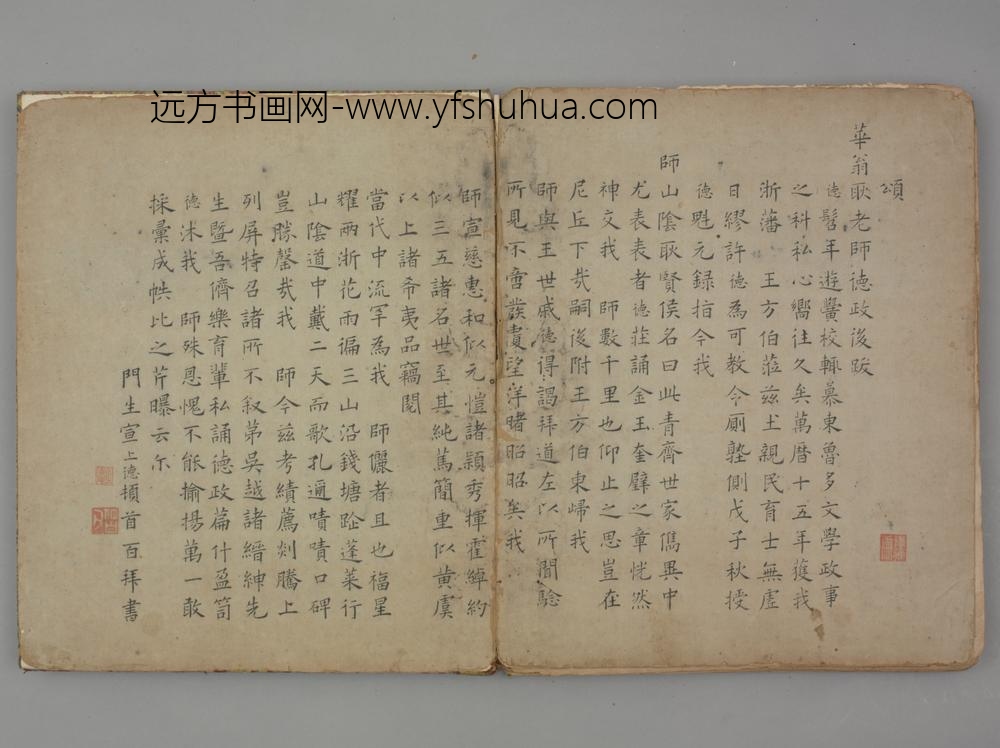 远方书画网-www.yfshuhua.com
頌
華翁耿老師德政後跋
德髫年遊黌校輒慕東魯多文學政事
之科私心嚮往久矣萬曆十五年獲我
浙藩王方伯蒞茲土親民育士無虛
日繆許德為可教今廁塾側戊子秋授
德魁元録指今我
師山陰耿賢侯名曰此青齊世家儁異中
尤表表者德莊誦金玉奎璧之章恍然
神交我師數千里也仰止之思豈在
尼丘下哉嗣後附王方伯東歸我
師與王世戚德得謁拜道左以所聞驗
所見不啻發覆望洋睹昭昭矣我
師宣慈惠和似元愷諸穎秀揮霍綽約
似三五諸名世至其純篤簡重似黃虞
以上諸希夷品竊閱
當代中流罕為我師儷者且也福星
耀兩浙花雨徧三山沿錢塘跐蓬萊行
山陰道中戴二天而歌孔邇嘖嘖口碑
豈勝罄哉我師今茲考績薦剡騰上
列屏特召諸所不叙弟吳越諸縉紳先
生暨吾儕樂育輩私誦德政篇什盈笥
德沐我師殊恩愧不能揄揚萬一敢
採彙成帙比之芹曝云尒
門生宣上德頓首百拜書